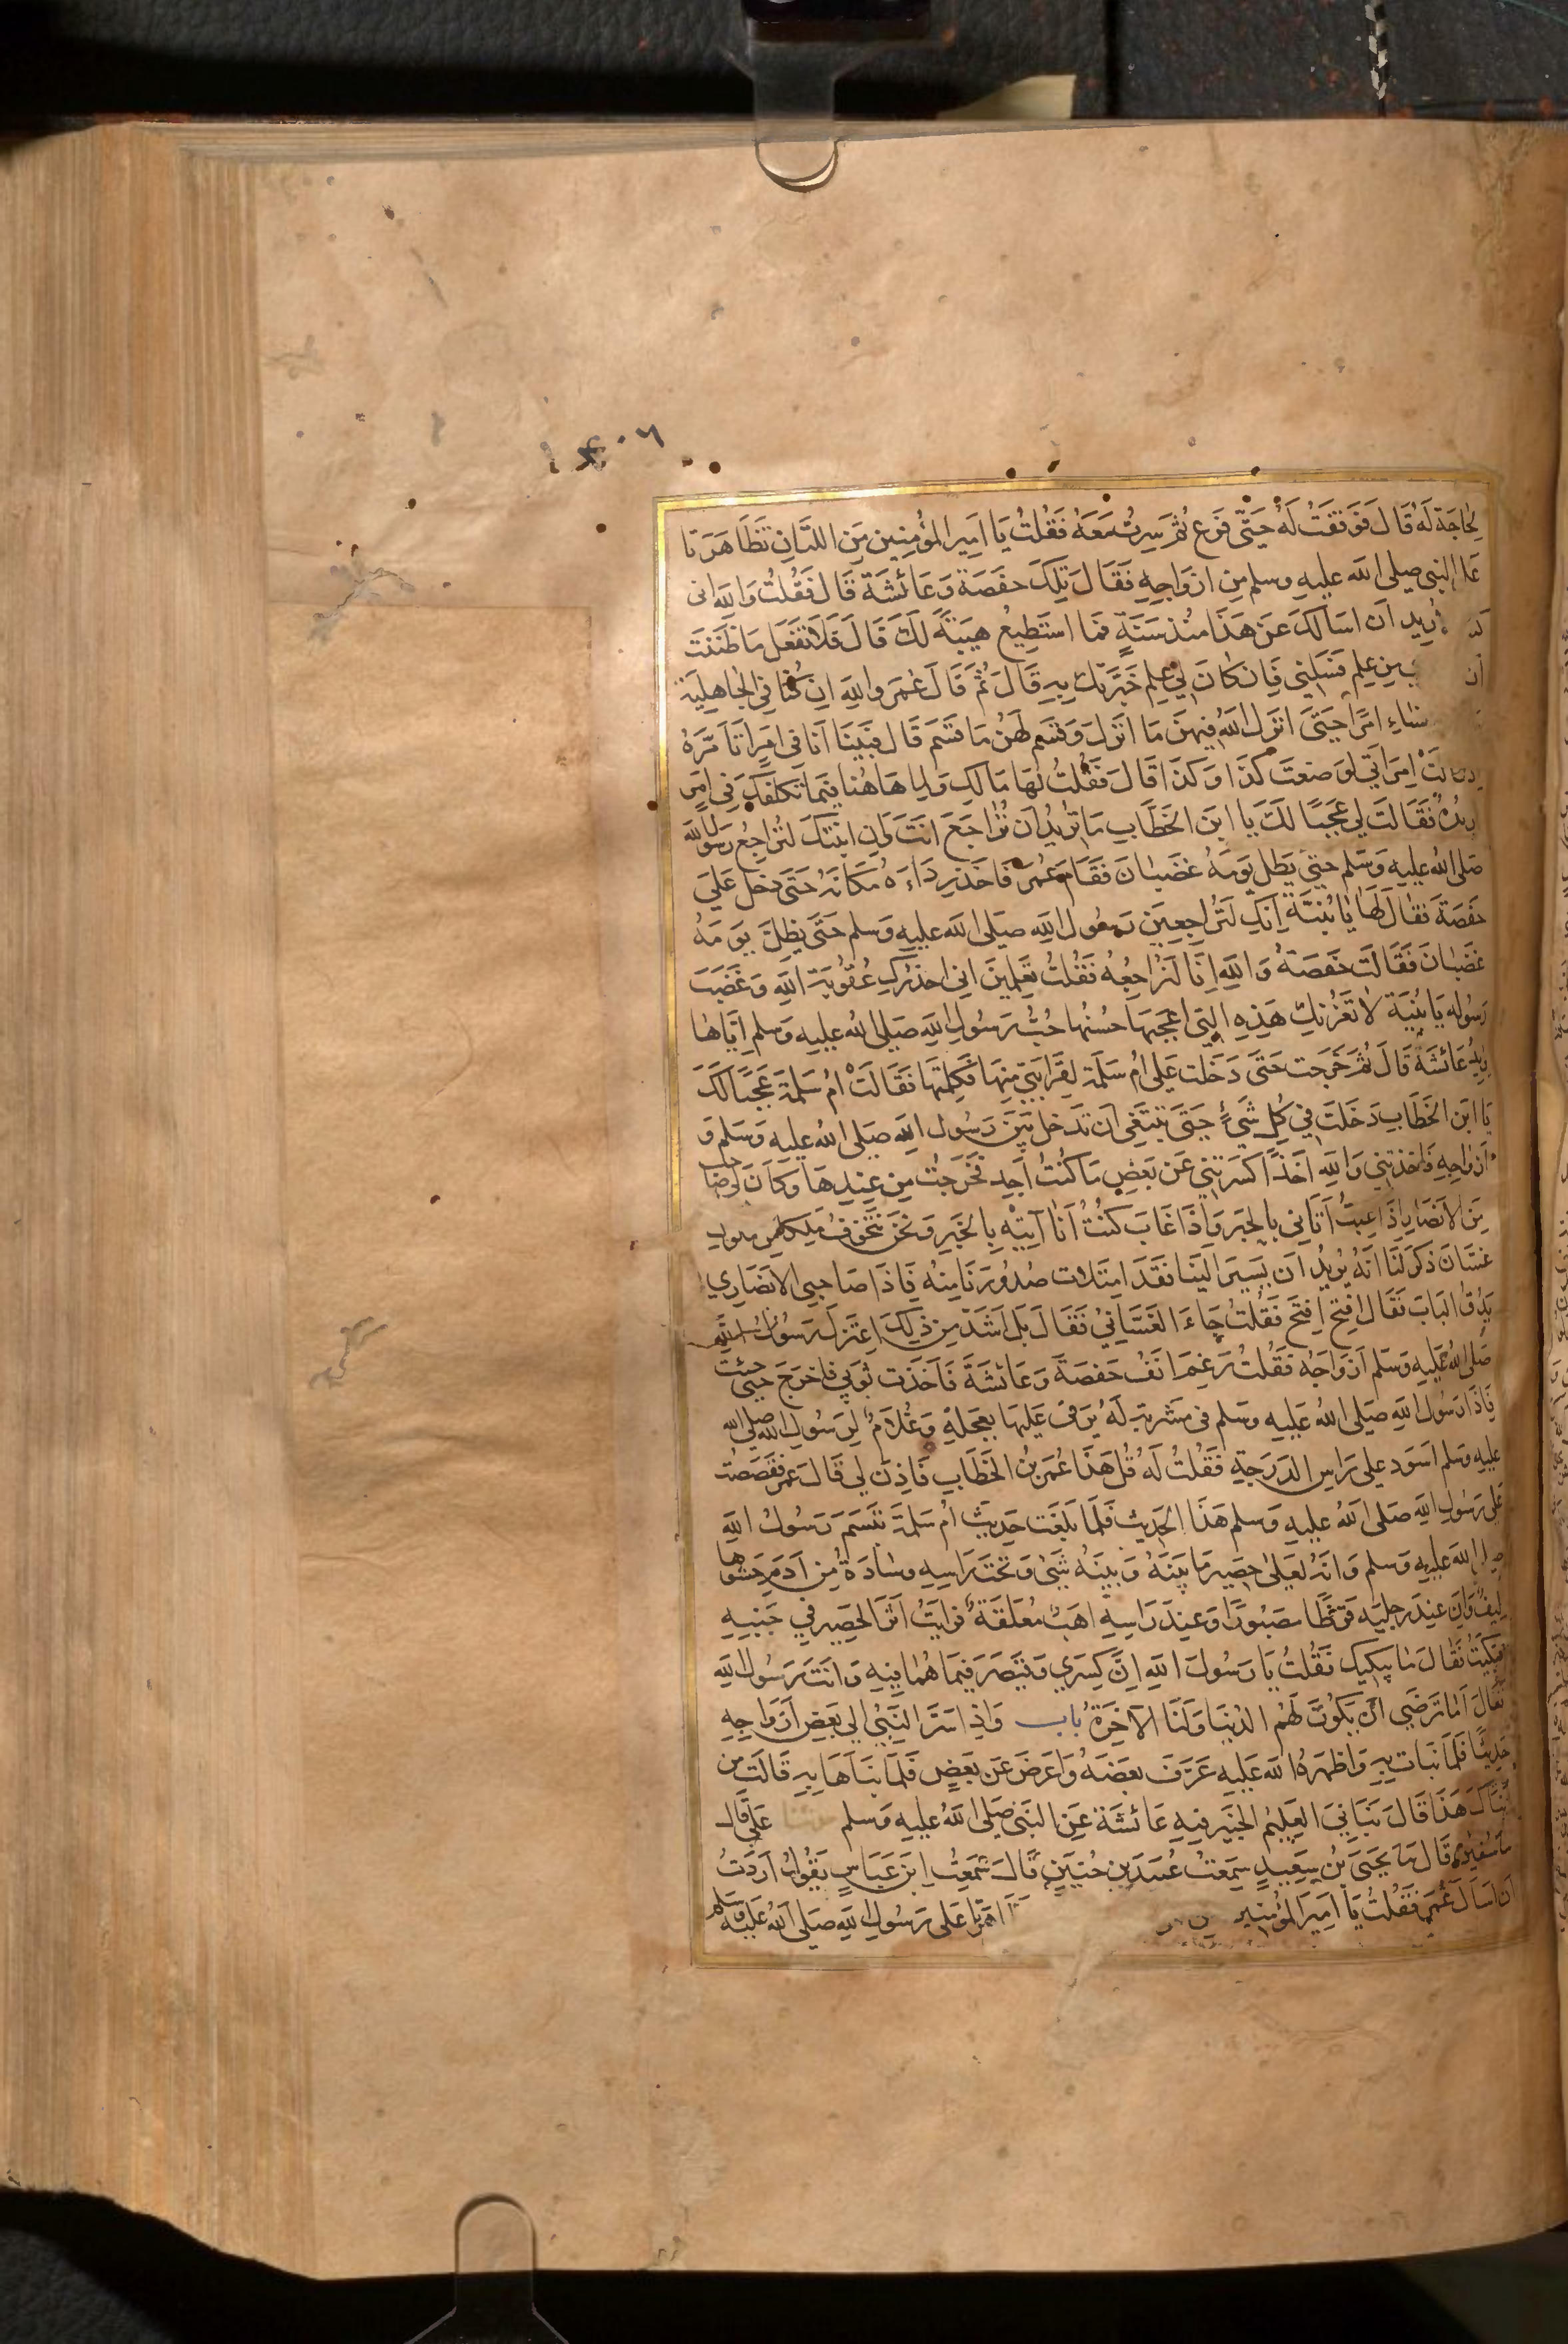 لحاجة له قال فوقفت له حتى فرغ ثم سرت معه فقلت يا امير المؤمنين من اللتان تظاهرتا
علي النبي صلى الله عليه وسلم من ازواجه فقال تلك حفصة وعائشة قال فقلت والله انى
اريد ان اسالك عن هذا منذ سنة فما استطيع هيبة لك قال فلا تفعل ما ظننت
ان من علم فسلني فان كان لي علم خبرتك به قال ثم قال عمر والله ان كنا في الجاهلية
للنساء امرا حتى انزل الله فيهن ما انزل وقسم لهن ما قسم قال فبينا انا في امر اتامره
اذ قالت امراتي لو صنعت كذا وكذا قال فقلت لها مالك ولما هاهنا فيما تكلفك في امر
اريده فقالت لي عجبا لك يا ابن الخطاب ما تريد ان تراجع انت وان ابنتك لتراجع رسول الله
صلى الله عليه وسلم حتى يظل يومه غضبان فقام عمر فاخذ رداءه مكانه حتى دخل على
حفصة فقال لها يا بنية انك لتراجعين رسول الله صلى الله عليه وسلم حتى يظل يومه
غضبان فقالت حفصة والله انا لنراجعه فقلت تعلمين اني احذرك عقوبة الله وغضب
رسوله يا بنية لا تغرنك هذه التي اعجبها حسنها حب رسول الله صلى الله عليه وسلم اياها
يريد عائشة قال ثم خرجت حتى دخلت على ام سلمة لقرابتي منها فكلمتها فقالت ام سلمة عجبا لك
يا ابن الخطاب دخلت في كل شيء حتى تبتغي ان تدخل بين رسول الله صلى الله عليه وسلم و
ازواجه فاخذتني والله اخذا كسرتني عن بعض ما كنت اجد فخرجت من عندها وكان لي صاحب
من الانصار اذا غبت اتاني بالخبر واذا غاب كنت انا آتيه بالخبر ونحن نتخوف ملكا من ملوك
غسان ذكر لنا انه يريد ان يسير الينا فقد امتلات صدورنا منه فاذا صاحبي الانصاري
يدق الباب فقال افتح افتح فقلت جاء الغساني فقال بل اشد من ذلك اعتزل رسول الله
صلى الله عليه وسلم ازواجه فقلت رغم انف حفصة وعائشة فاخذت ثوبي فاخرج حتى جئت
فاذا رسول الله صلى الله عليه وسلم في مشربة له يرقى عليها بعجلة وغلام لرسول الله صلى الله
عليه وسلم اسود على راس الدرجة فقلت له قل هذا عمر بن الخطاب فاذن لي قال عمر فقصصت
على رسول الله صلى الله عليه وسلم هذا الحديث فلما بلغت حديث ام سلمة تبسم رسول الله
صلى الله عليه وسلم وانه لعلى حصير ما بينه وبينه شيء وتحت راسه وسادة من ادم حشوها
ليف وان عند رجليه قرظا مصبورا وعند راسه اهب معلقة فرايت اثر الحصير في جنبه
فبكيت فقال ما يبكيك فقلت يا رسول الله ان كسرى وقيصر فيما هما فيه وانت رسول الله
فقال اما ترضى ان يكون لهم الدنيا ولنا الآخرة باب واذ اسر النبي الى بعض ازواجه
حديثا فلما نبات به واظهره الله عليه عرف بعضه واعرض عن بعض فلما نباها به قالت من
انباك هذا قال نباني العليم الخبير فيه عائشة عن النبي صلى الله عليه وسلم علي قال
ما سفين قال ما يحيى بن سعيد سمعت عبيد بن حنين قال سمعت ابن عباس يقول اردت
ان اسال عمر فقلت يا امير المؤمنين تظاهرتا على رسول الله صلى الله عليه وسلم